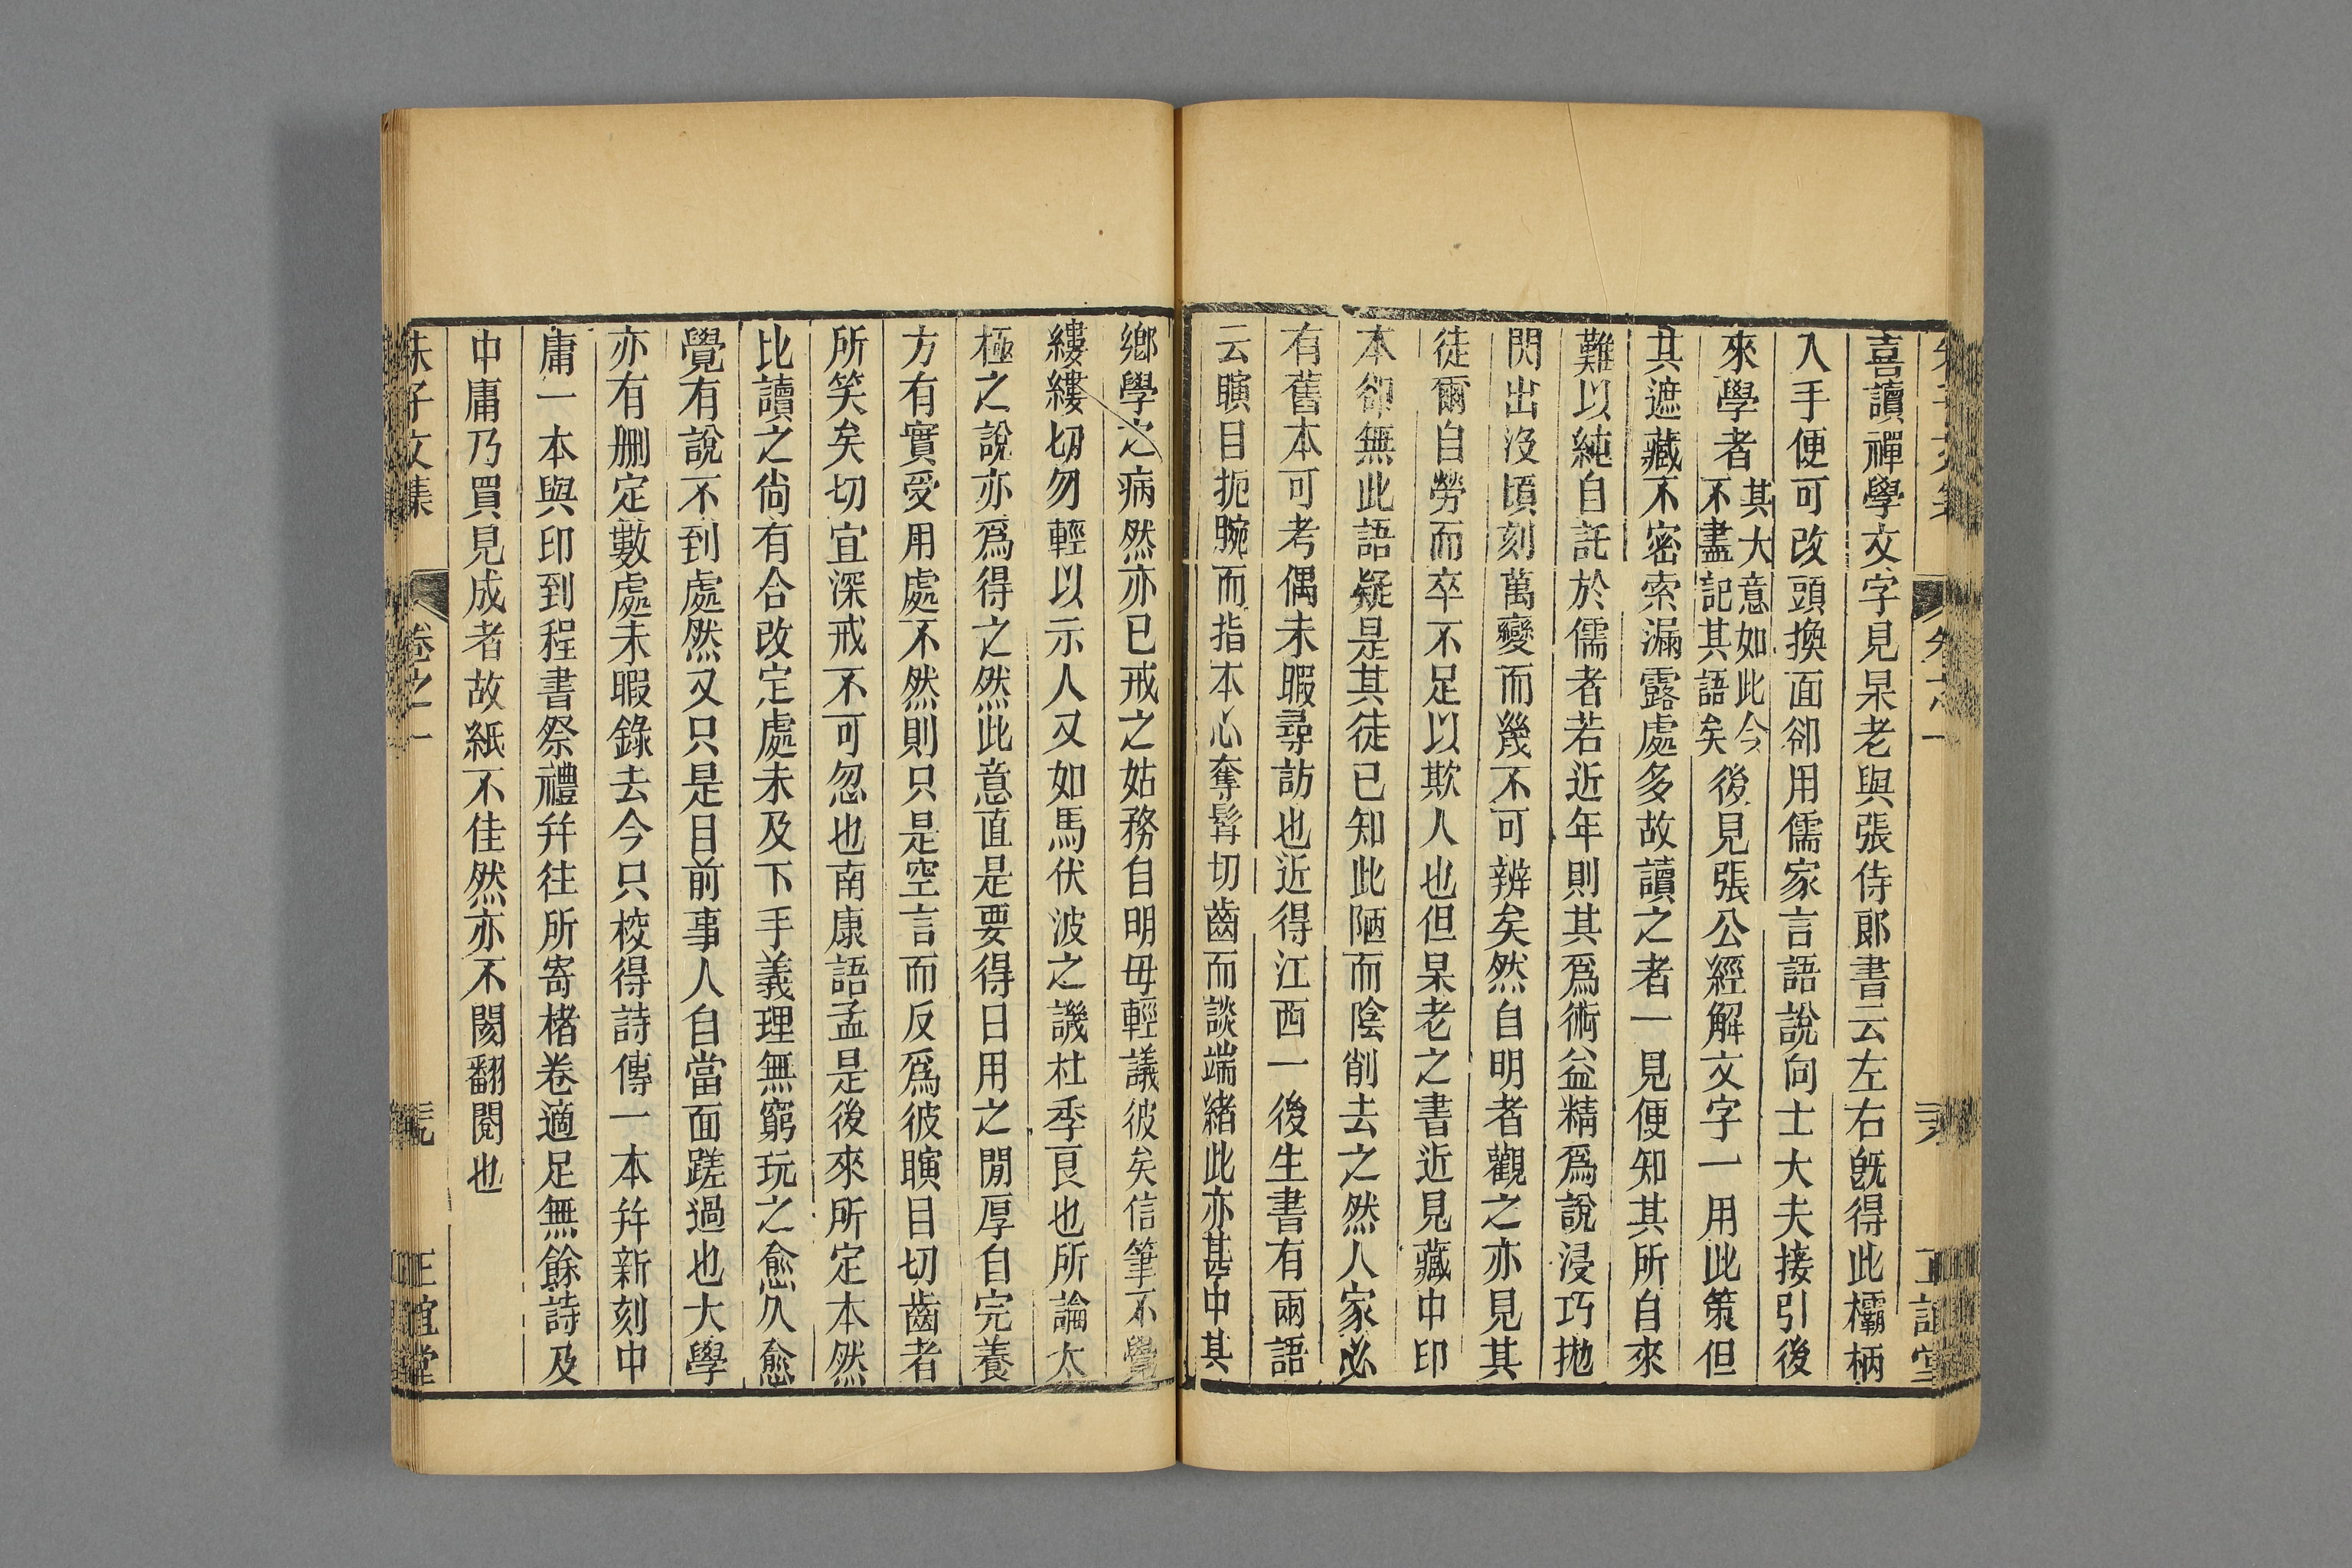 喜讀禪學文字見杲老與張侍郎書云左右旣得此欛柄
入手便可改頭換面卻用儒家言語說向士大夫接引後
來學者其大意如此今不盡記其語矣後見張公經解文字一用此策但
其遮藏不密索漏露處多故讀之者一見便知其所自來
難以純自託於儒者若近年則其爲術益精爲說浸巧拋
閃出沒頃刻萬變而幾不可辨矣然自明者觀之亦見其
徒爾自勞而卒不足以欺人也但杲老之書近見藏中印
本卻無此語疑是其徒已知此陋而陰削去之然人家必
有舊本可考偶未暇尋訪也近得江西一後生書有兩語
云瞋目扼腕而指本心奮髯切齒而談端緒此亦甚中其
鄉學之病然亦已戒之姑務自明毋輕議彼矣信筆不覺
縷縷切勿輕以示人又如馬伏波之譏杜季良也所論太
極之說亦爲得之然此意直是要得日用之閒厚自完養
方有實受用處不然則只是空言而反爲彼瞋目切齒者
所笑矣切宜深戒不可忽也南康語孟是後來所定本然
比讀之尙有合改定處未及下手義理無窮玩之愈久愈
覺有說不到處然又只是目前事人自當面蹉過也大學
亦有刪定數處未暇錄去今只校得詩傳一本幷新刻中
庸一本與印到程書祭禮幷往所寄楮卷適足無餘詩及
中庸乃買見成者故紙不佳然亦不閡翻閱也
朱子文集 卷之一 正誼堂